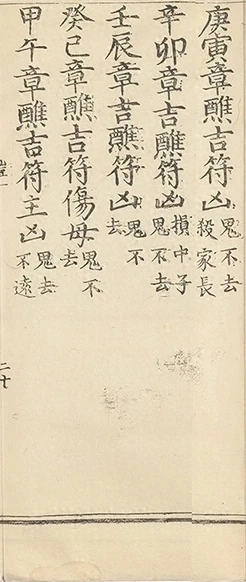 庚寅章醮吉符凶鬼不去殺家長
辛卯章吉醮符凶損中子鬼不去
壬辰章吉醮符凶鬼不去
癸巳章醮吉符傷母鬼不去
甲午章醮吉符主凶鬼去不遠
二十